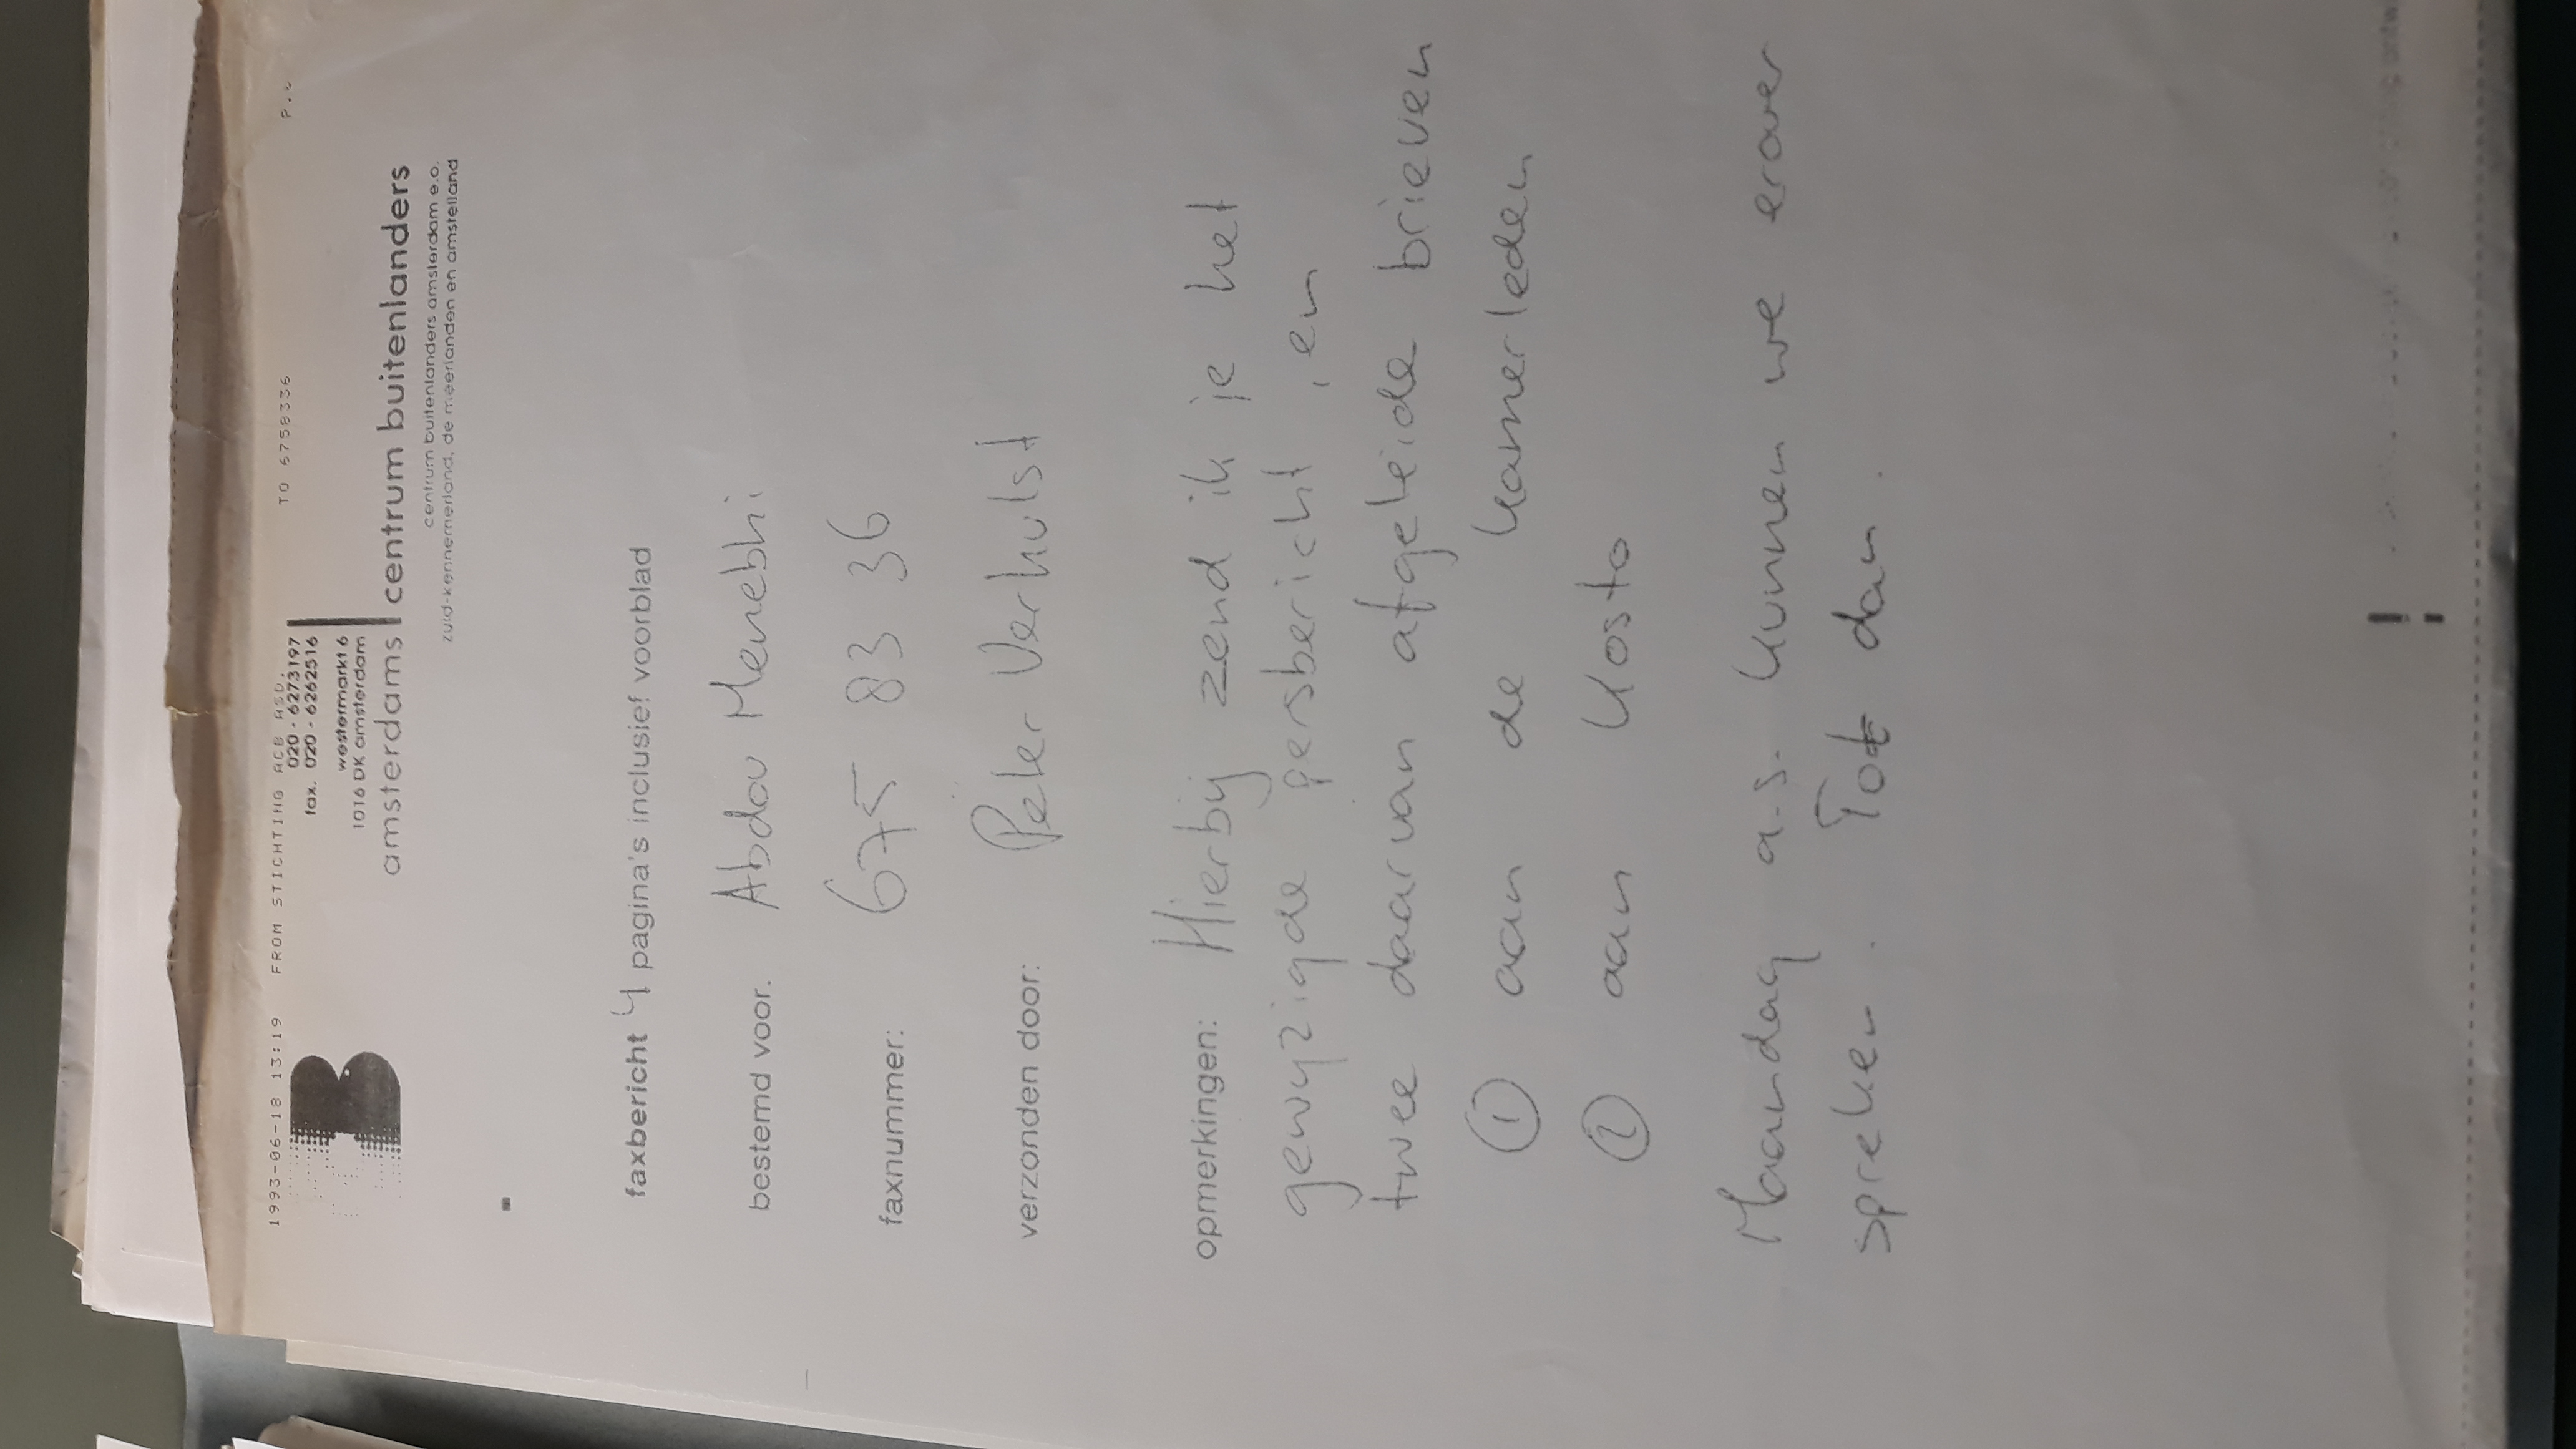 1993-06-18 13:19 FROM STICHTING ACB ASD. TO 6758336
020 - 6273197
fax. 020 - 6262516
westermarkt 6
1016 DK amsterdam
amsterdams centrum buitenlanders
centrum buitenlanders amsterdam e.o.
zuid-kennemerland, de meerlanden en amstelland
faxbericht 4 pagina's inclusief voorblad
bestemd voor. Abdou Menebhi
faxnummer: 675 83 36
verzonden door: Peter Verhulst
opmerkingen: Hierbij zend ik je het
gewyzigde persbericht, en
twee daarvan afgeleide brieven
① aan de kamerleden
② aan Kosto
Maandag a.s. kunnen we erover
spreken. Tot dan.